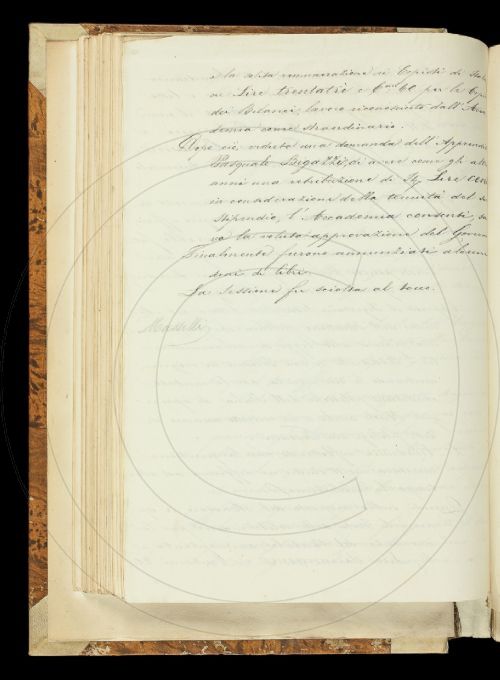 e la solita remunerazione ai Copisti di
in Lire trentatré e C.mi 60 per le
dei Bilanci, lavoro riconosciuto dall'
demia come straordinario.
Dopo ciò, veduta una domanda dell'
Pasquale Bigazzi, di avere come gli
anni una retribuzione di Lire
in considerazione della tenuità del
stipendio, l'Accademia consentì,
vo la voluta approvazione del
Finalmente furono annunziati
di libri.
La Sessione fu sciolta al tocco.
Masselli